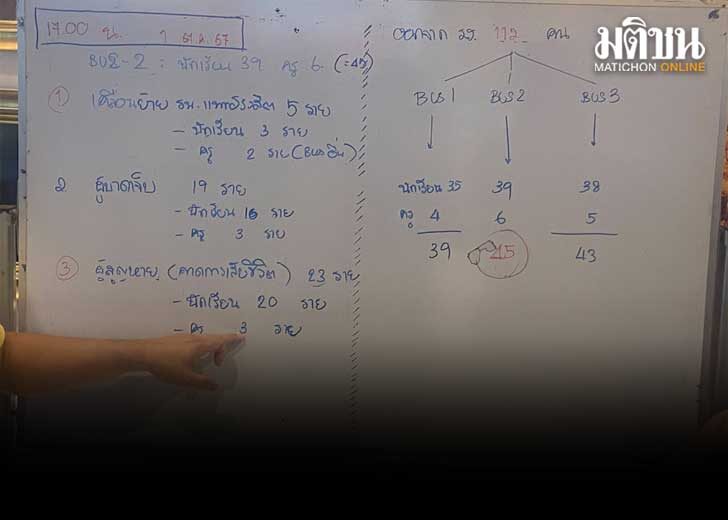 17.00 น. 1 ต.ค. 67
BUS-2 : นักเรียน 39 ครู 6 (=45)
① เคลื่อนย้าย รพ. แพทย์รังสิต 5 ราย
- นักเรียน 3 ราย
- ครู 2 ราย (BUSอื่น)
2 ผู้บาดเจ็บ 19 ราย
- นักเรียน 16 ราย
- ครู 3 ราย
③ ผู้สูญหาย (คาดการเสียชีวิต) 23 ราย
- นักเรียน 20 ราย
- ครู 3 ราย
มติชน
MATICHON ONLINE
ออกจาก รร. คน
BUS 1 BUS 2 BUS 3
นักเรียน 35 39 38
ครู 4 6 5
39 45 43